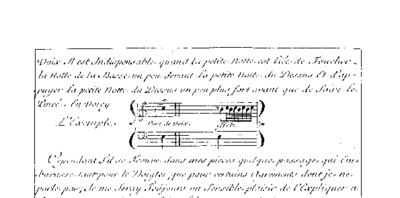 Voix Il est Indispensable, quand la petite Notte est liée, de Toucher
la Notte de la Basse un peu devant la petite Notte du Dessus Et d'ap-
puyer la petite Notte du Dessus un peu plus fort avant que de faire le
Pincé. En Voicy
L'Exemple.
Port de Voix. Effet.
Cependant s'il se Trouve, dans mes pièces quelques passages qui Em-
barasse tant pour le Doigter, que pour certains Agrémens dont je ne
parle pas, Je me feray Toûjours un Sensible plaisir de l'Expliquer a